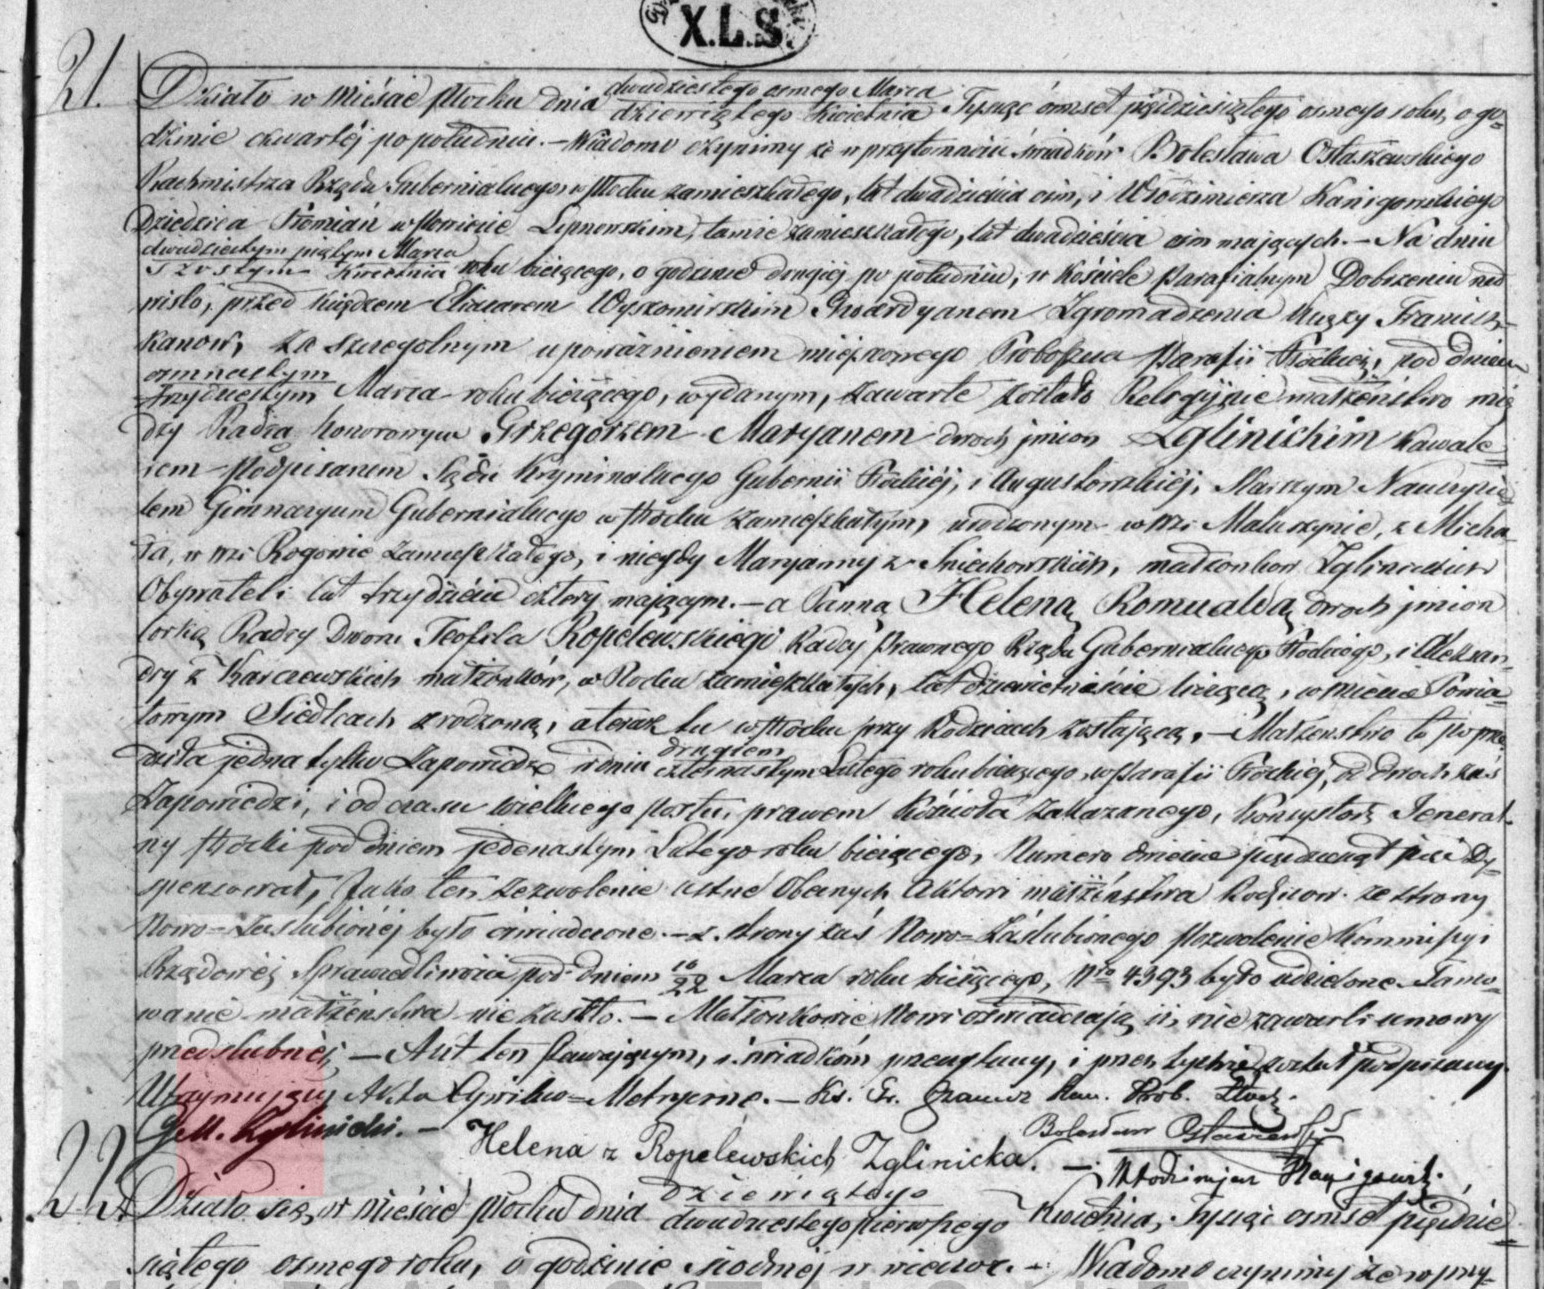 X.L.S.
21.
Działo w Mieście Płocku dnia dwudziestego osmego Marca
dziewiątego Kwietnia Tysiąc ómset pięćdziesiątego osmego roku, o go-
dzinie czwartéj po południu. – Wiadomo czynimy że w przytomności świadków Bolesława Ostaszewskiego
Rachmistrza Rządu Gubernialnego w Płocku zamieszkałego, lat dwadzieścia ośm, i Włodzimierza Kanigowskiego
Dziedzica w Powiecie Lipnowskim, tamże zamieszkałego, lat dwadzieścia ośm mających. – Na dniu
dwudziestym piątym Marca
szóstym Kwietnia roku bieżącego, o godzinie drugiéj po południu, w Kościele Parafialnym Dobrzeniu nad
wisłą, przed Księdzem Wyszomirskim Gwardyanem Zgromadzenia Księży Francisz-
kanów, za szczególnym upoważnieniem miejscowego Proboszcza Parafii Płockiéj, pod dniem
osmnastym
trzydziestym Marca roku bieżącego, wydanym, zawarte zostało Religijnie małżeństwo mię
dzy Radzcą honorowym Grzegorzem Maryanem dwoch imion Zglinickim Kawale-
rem Podpisarzem Sądu Kryminalnego Gubernii Płockiéj, i Augustowskiéj, Starszym Nauczycie-
lem Gimnazyum Gubernialnego w Płocku zamieszkałym, urodzonym w wsi Maluszynie, z Micha-
ła, w wsi Rogowie zamieszkałego, i niegdy Maryanny z Sniechowskich, małżonków Zglinickich
Obywateli lat trzydzieści cztery mającym. – a Panną Heleną Romualdą dwoch imion
córką Radcy Dworu Teofila Ropelewskiego Radcy Prawnego Rządu Gubernialnego Płockiego, i Aleksan-
dry z Karczewskich małżonków, w Płocku zamieszkałych, lat dziewietnaście liczącą, w mieście Powia-
towym Siedlcach zrodzoną, a teraz tu w Płocku przy Rodzicach zostającą. – Małżeństwo to poprze-
dziła jedna tylko Zapowiedź w dniu drugiem
czternastym Lutego roku bieżącego, w Parafii Płockiéj, od dwoch zaś
Zapowiedzi, i od czasu wielkiego postu, prawem Kościoła zakazanego, Konsystorz Jeneral-
ny Płocki pod dniem jedenastym Lutego roku bieżącego, Numero dwieście pięćdziesiąt pięć Dy-
spensował, Jako też zezwolenie ustne obecnych Aktowi małżeństwa Rodziców ze strony
Nowo=Zaślubionéj było oświadczone. – z strony zaś Nowo=Zaślubionego Pozwolenie Kommissyi
Rządowéj Sprawiedliwości pod dniem 10/22 Marca roku bieżącego, Nro 4393 było udzielone. Tamo-
wanie małżeństwa nie zaszło. – Małżonkowie Nowi oświadczają iż, nie zawarli umowy
przedślubnéj. – Akt ten stawającym, i świadkom przeczytany, i przez tychże został podpisany
Utrzymujący Akta Cywilno=Metryczne. – Ks. Fr. Kan. Prob. Płock.
G. M. Zglinicki. –
Helena z Ropelewskich Zglinicka. –
Bolesław Ostaszewski
Włodzimierz Kanigowski.
22.
Działo się w Mieście Płocku dnia dziewiątego
dwudziestego pierwszego Kwietnia, Tysiąc ośmset pięćdzie-
siątego osmego roku, o godzinie siodméj w wieczor. – Wiadomo czynimy że w przy-